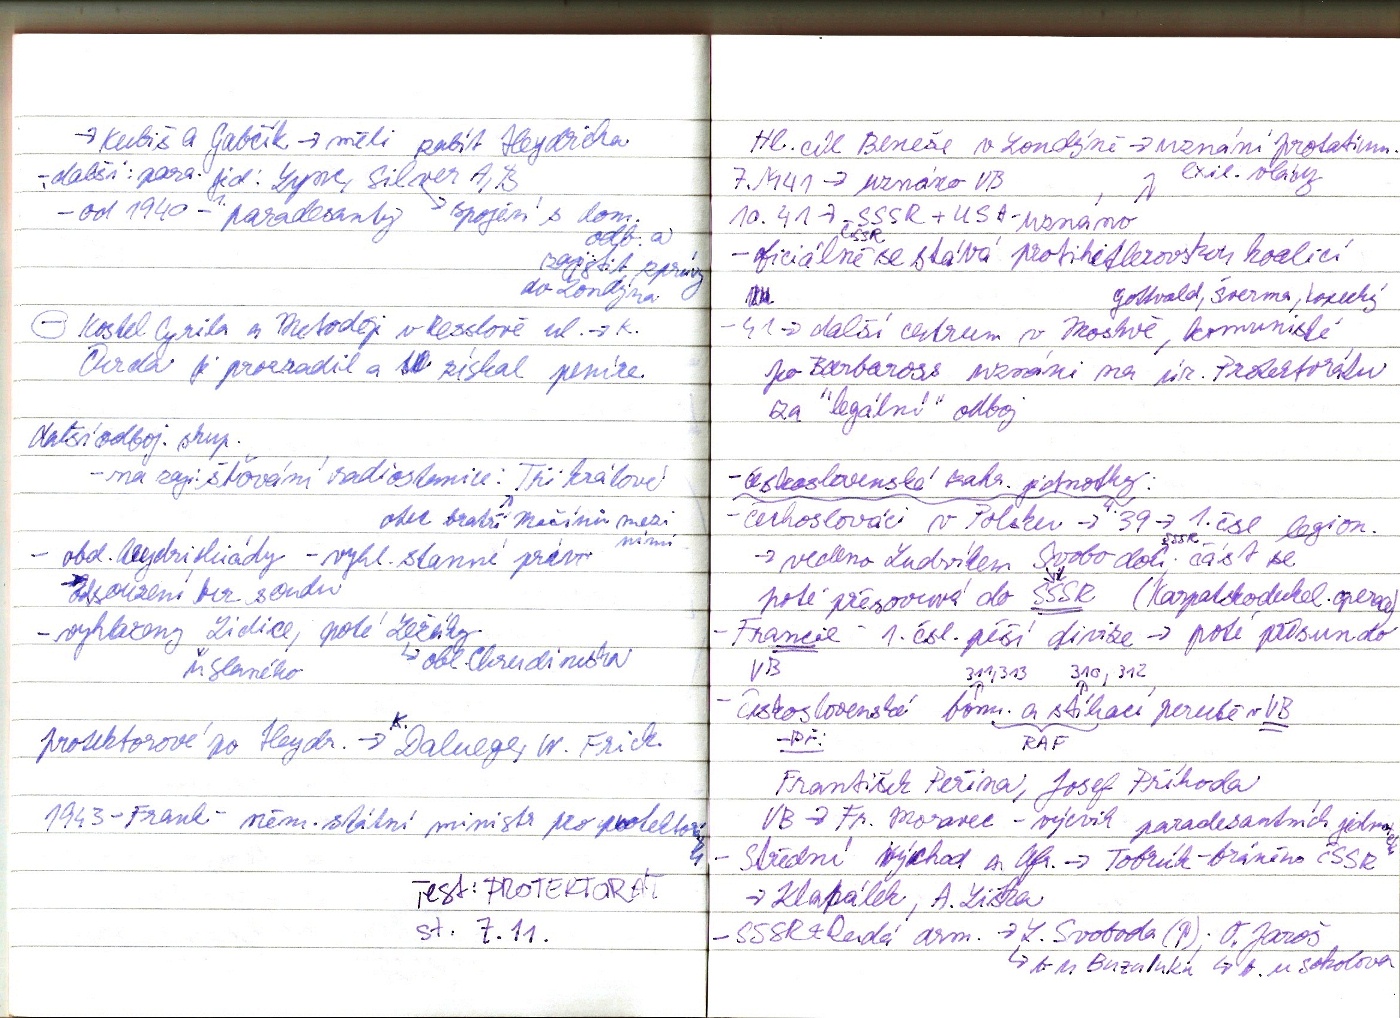 → Kubiš a Gabčík → měli zabít Heydricha
- další: para. jed.: Zync, Silver A, B
- od 1940 - paradesanty → spojení s dom.
odb. a
zajistit zprávy
do Londýna
Kostel Cyrila a Metoděj v Resslově ul. → K.
Čurda je prozradil a získal peníze
další odboj. skup.
- na zajišťování radiostanice: Tři králové
obec bratří Mašínů mezi
nimi
- obd. heydrichiády - vyhl. stanné právo
odsouzení bez soudu
- vyhlazeny Lidice, poté Ležáky
u Slaného ↳ obl. Chrudimska
protektorové po Heydr. → K. Daluege, W. Frick
1943 - Frank - něm. státní ministr pro protektorát
Test: PROTEKTORÁT
st. 7. 11.
Hl. cíl Beneše v Londýně → uznání prozatímn.
exil. vlády
7. 1941 → uznáno VB
10. 41 → SSSR + USA - uznáno
ČSSR
- oficiálně se stává protihitlerovskou koalicí
Gottwald, Šverma, Kopecký
- 41 → další centrum v Moskvě, komunisté
po Barbaross uznáni na úz. Protektorátu
za "legální" odboj
- Československé zahr. jednotky:
- Čechoslováci v Polsku → 39 → 1. čsl. legion.
→ vedeno Ludvíkem Svobodou část se
SSSR
poté přesouvá do SSSR (Karpatskodukel. operace)
- Francie - 1. čsl. pěší divize → poté přesun do
VB 311, 313 310, 312
- Československé bom. a stíhací perutě v VB
- Př: RAF
František Peřina, Josef Příhoda
VB → Fr. Moravec - výcvik paradesantních jednotek
- Střední východ a Afr. → Tobrúk - bráněno ČSSR
→ Klapálek, A. Liška
- SSSR + Rudá arm. → L. Svoboda (P), O. Jaroš
↳ b. u Buzuluku ↳ b. u Sokolova